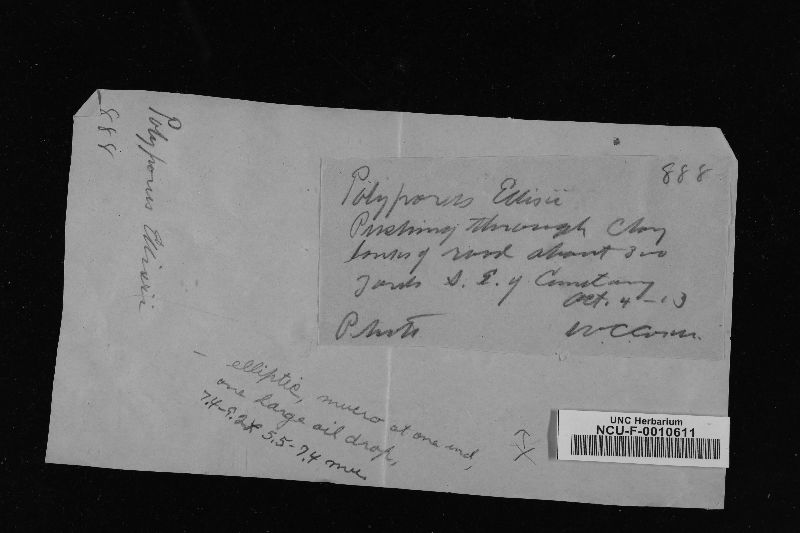 888
Polyporus Ellisii
888
Polyporus Ellisii
Pushing through clay
bank of road about 300
yards S. E. of Cemetary
Oct. 4 - 13
Photo
WC Coker
elliptic, mucro at one end,
one large oil drop,
7.4-9.2 x 5.5-7.4 mu.
UNC Herbarium
NCU-F-0010611